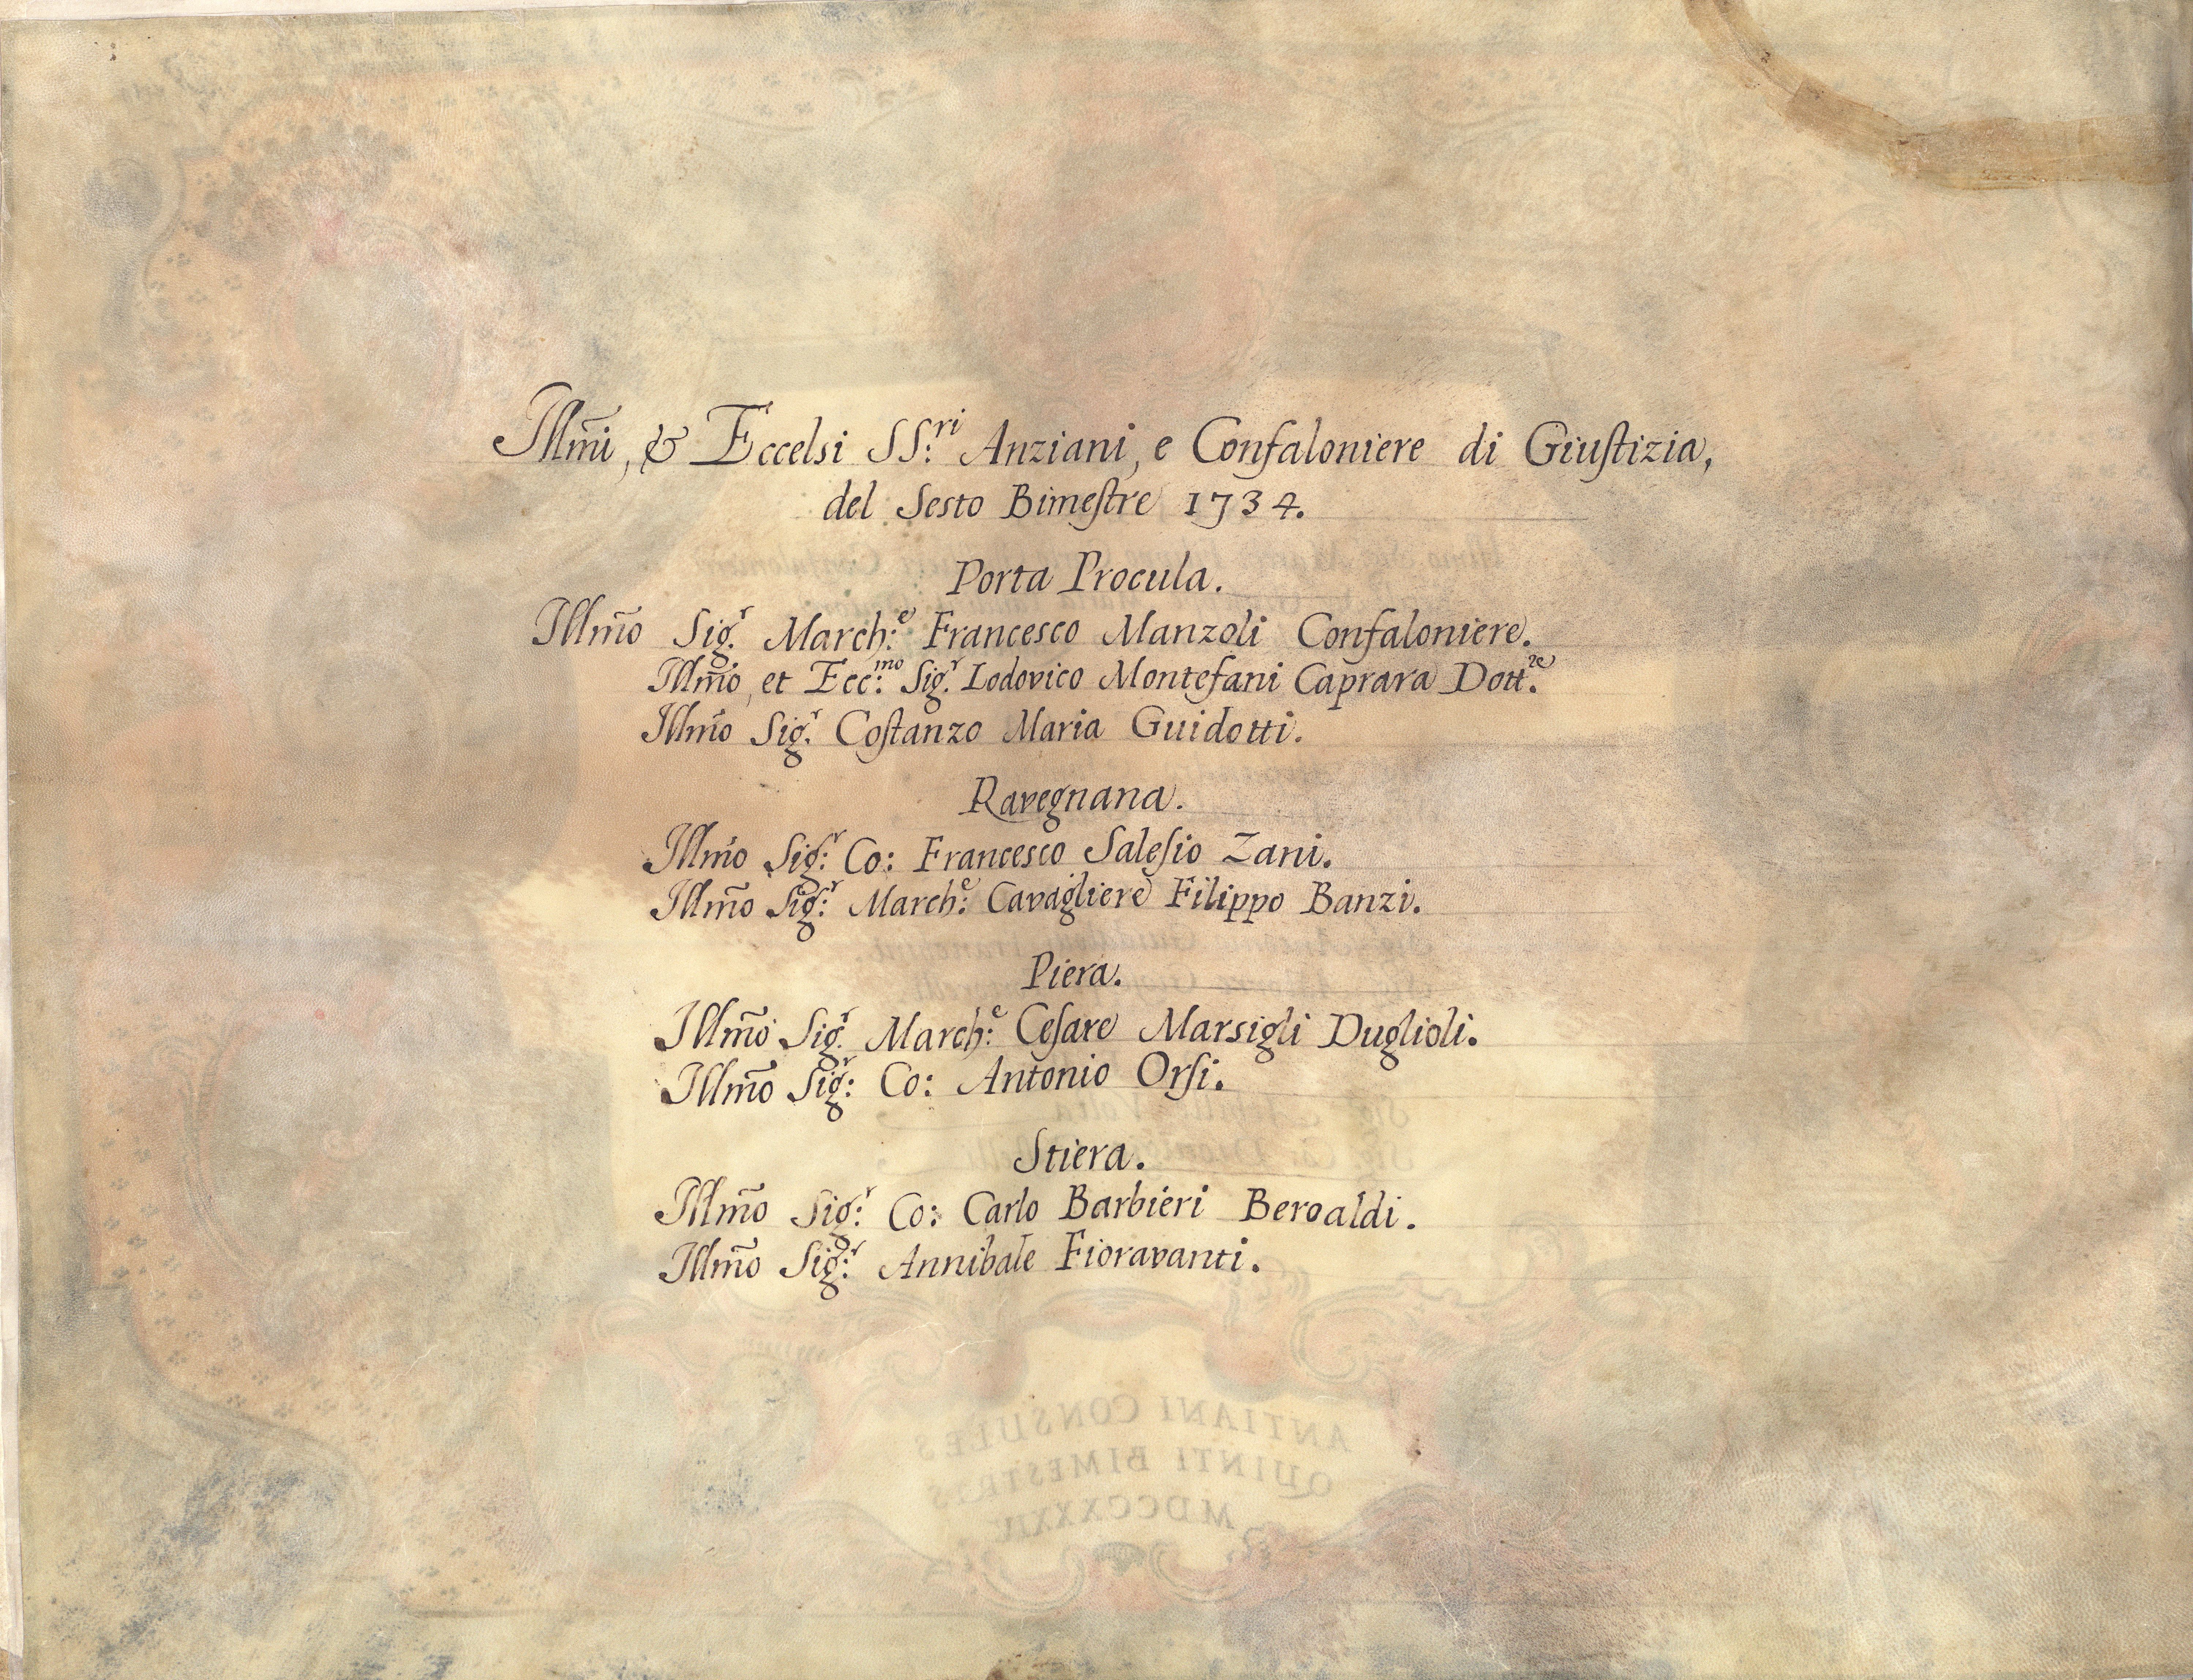 Illm̃i, & Eccelsi SS:ri Anziani, e Confaloniere di Giuſtizia,
del Sesto Bimeſtre 1734.
Porta Procula.
Illm̃o Sig.r March:e Francesco Manzoli Confaloniere.
Illm̃o, et Ecc:mo Sig.r Lodovico Montefani Caprara Dott.re
Illm̃o Sig.r Coſtanzo Maria Guidotti.
Ravegnana.
Illm̃o Sig:r Co: Francesco Saleſio Zani.
Illm̃o Sig:r March:e Cavagliere Filippo Banzi.
Piera.
Illm̃o Sig.r March:e Ceſare Marsigli Duglioli.
Illm̃o Sig:r Co: Antonio Orſi.
Stiera.
Illm̃o Sig:r Co: Carlo Barbieri Beroaldi.
Illm̃o Sig:r Annibale Fioravanti.
ANTIANI CONSULES
QUINTI BIMESTRIS
MDCCXXXIV